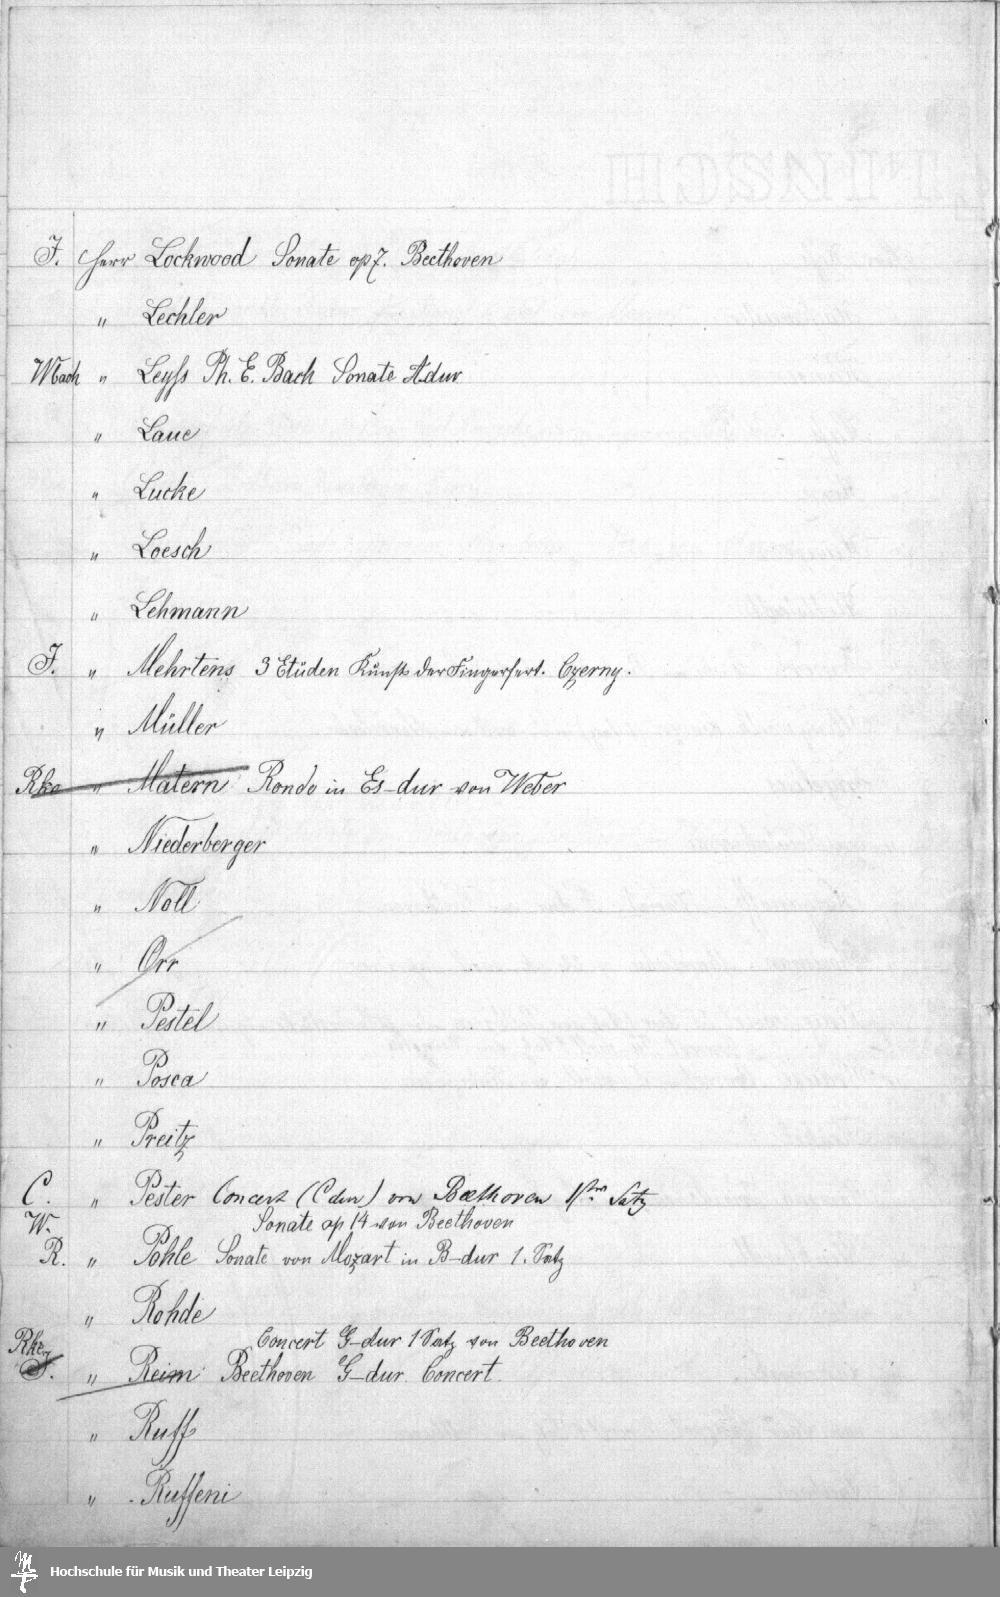 J. Herr Lockwood Sonate op 7. Beethoven
" Lechler
Wbach " Leyſs Ph. E. Bach Sonate A dur
" Laue
" Lucke
" Loesch
" Lehmann
J. " Mehrtens 3 Etüden Kunst der Fingerfert. Czerny.
" Müller
Rke " Matern Rondo in Es-dur von Weber
" Niederberger
" Noll
" Orr
" Pestel
" Posca
" Preitz
C. " Pester Concert (C dur) von Beethoven 1ster Satz
W. Sonate op 14 von Beethoven
R. " Pohle Sonate von Mozart in B-dur 1. Satz
" Rohde
Rke Concert G-dur 1 Satz von Beethoven
J. " Reim Beethoven G-dur Concert.
" Ruff
" Ruffeni
Hochschule für Musik und Theater Leipzig